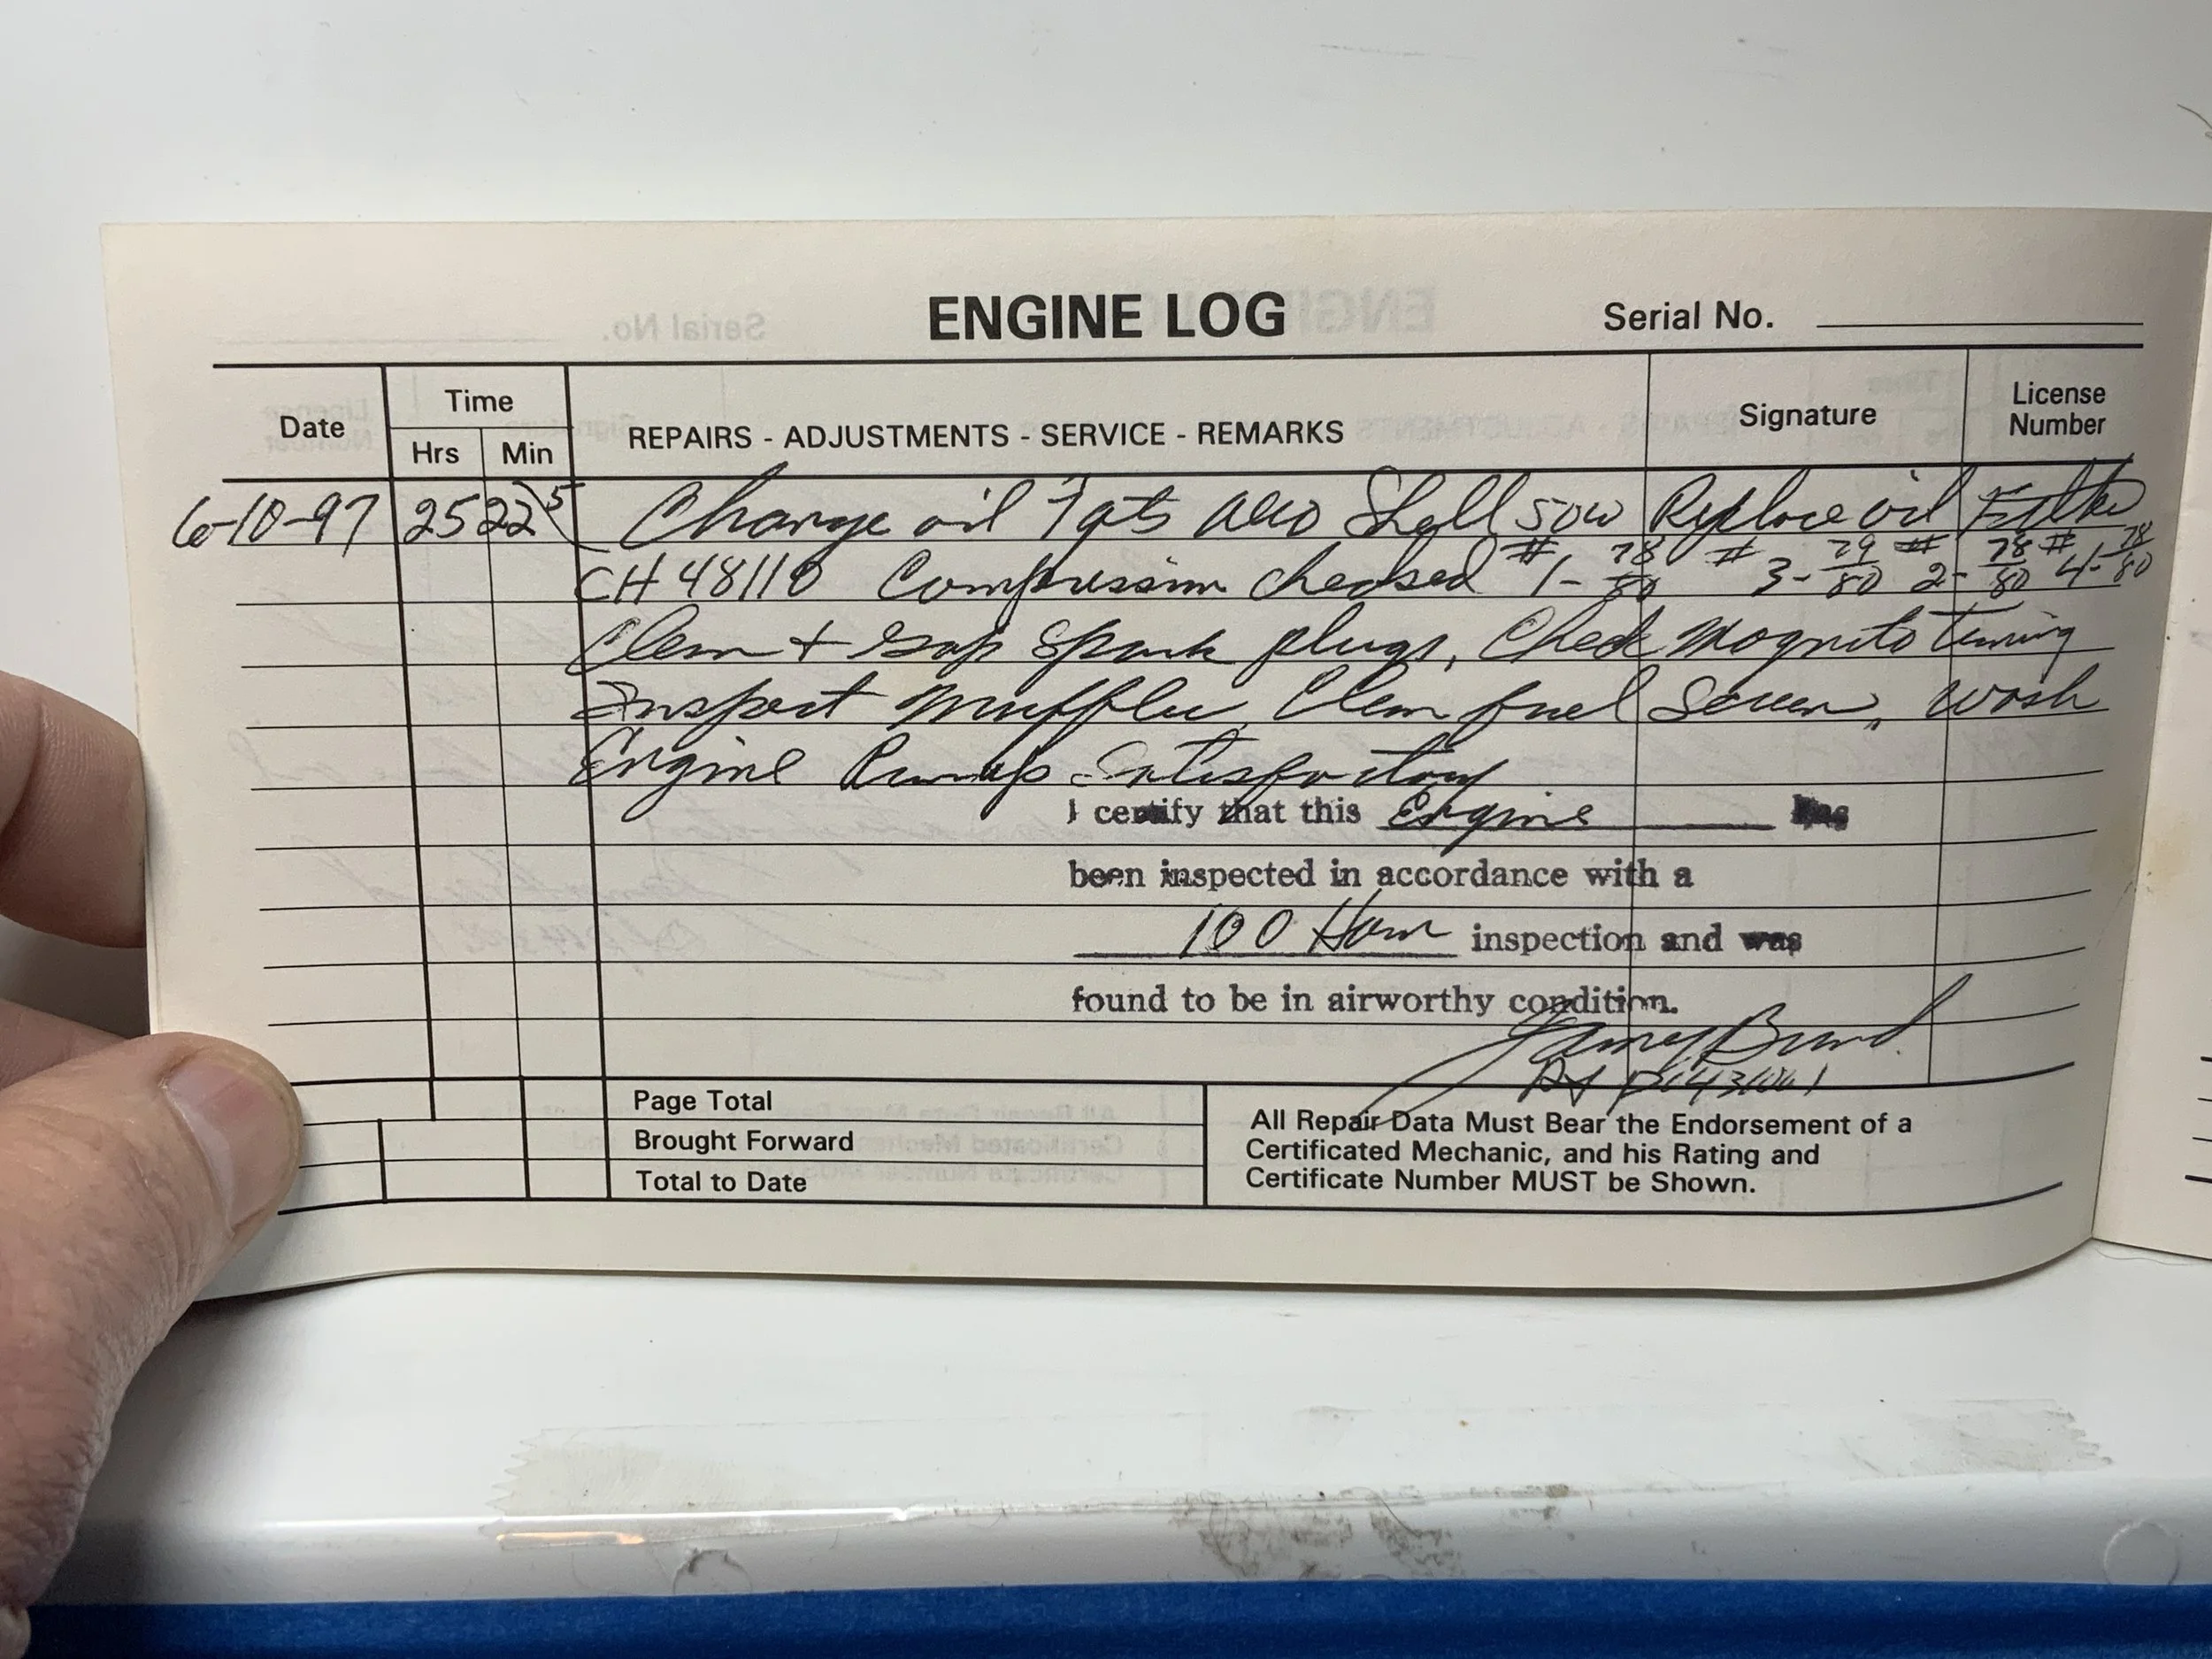 ENGINE LOG Serial No.
Date Time Hrs Min REPAIRS - ADJUSTMENTS - SERVICE - REMARKS Signature License Number
6-10-97 2522 5 Change oil 7 qts Aero Shell 50W Replace oil Filter
CH 48110 Compression checked #1- 78/80 #3- 79/80 #2- 78/80 #4- 78/80
Clean + Gap Spark plugs, Check Magneto timing
Inspect Muffler, Clean fuel Screen, Wash
Engine Runup Satisfactory
I certify that this Engine has
been inspected in accordance with a
100 Hour inspection and was
found to be in airworthy condition.
Page Total
Brought Forward
Total to Date
All Repair Data Must Bear the Endorsement of a
Certificated Mechanic, and his Rating and
Certificate Number MUST be Shown.